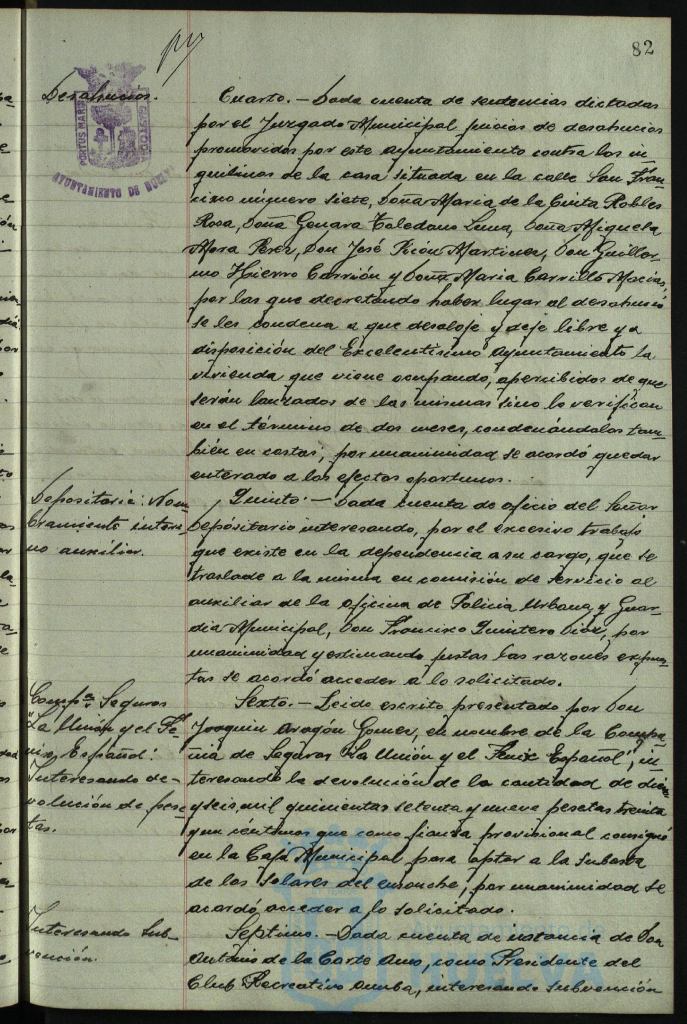 82
Desahucios.
PORTUS MARIS
AYUNTAMIENTO DE HUELVA
Cuarto.- Dada cuenta de sentencias dictadas
por el Juzgado Municipal juicios de desahucios
promovidos por este Ayuntamiento contra los in-
quilinos de la casa situada en la calle San Fran-
cisco número siete, Doña Maria de la Cinta Robles
Rosa, Doña Genara Toledano Luna, Doña Miguela
Mora Perez, Don José Picón Martinez, Don Guiller-
mo Hierro Carrión y Doña Maria Carrillo Macias,
por las que decretando haber lugar al desahucio
se les condena a que desaloje y deje libre y a
disposición del Excelentísimo Ayuntamiento la
vivienda que viene ocupando, apercibidos de que
serán lanzados de las mismas sino lo verifican
en el término de dos meses, condenándolos tam-
bién en costas; por unanimidad se acordó quedar
enterado a los efectos oportunos.
Depositaria: Nom-
bramiento inter-
no auxiliar.
Quinto.- Dada cuenta de oficio del Señor
Depositario interesando, por el excesivo trabajo
que existe en la dependencia a su cargo, que se
traslade a la misma en comisión de servicio al
auxiliar de la oficina de Policia Urbana y Guar-
dia Municipal, Don Francisco Quintero Diaz, por
unanimidad y estimando justas las razones expues-
tas se acordó acceder a lo solicitado.
Compª Seguros
"La Unión y el Fe-
nix Español".
Interesando de-
volución de pese-
tas.
Sexto.- Leido escrito presentado por Don
Joaquin Aragón Gomez, en nombre de la Compa-
ñia de Seguros "La Unión y el Fenix Español", in-
teresando la devolución de la cantidad de diez
y seis mil quinientas setenta y nueve pesetas treinta
y un céntimos que como fianza provisional consignó
en la Caja Municipal para optar a la subasta
de los solares del ensanche; por unanimidad se
acordó acceder a lo solicitado.
Interesando Sub-
vención.
Septimo.- Dada cuenta de instancia de Don
Antonio de la Corte Amo, como Presidente del
Club Recreativo Onuba, interesando subvención